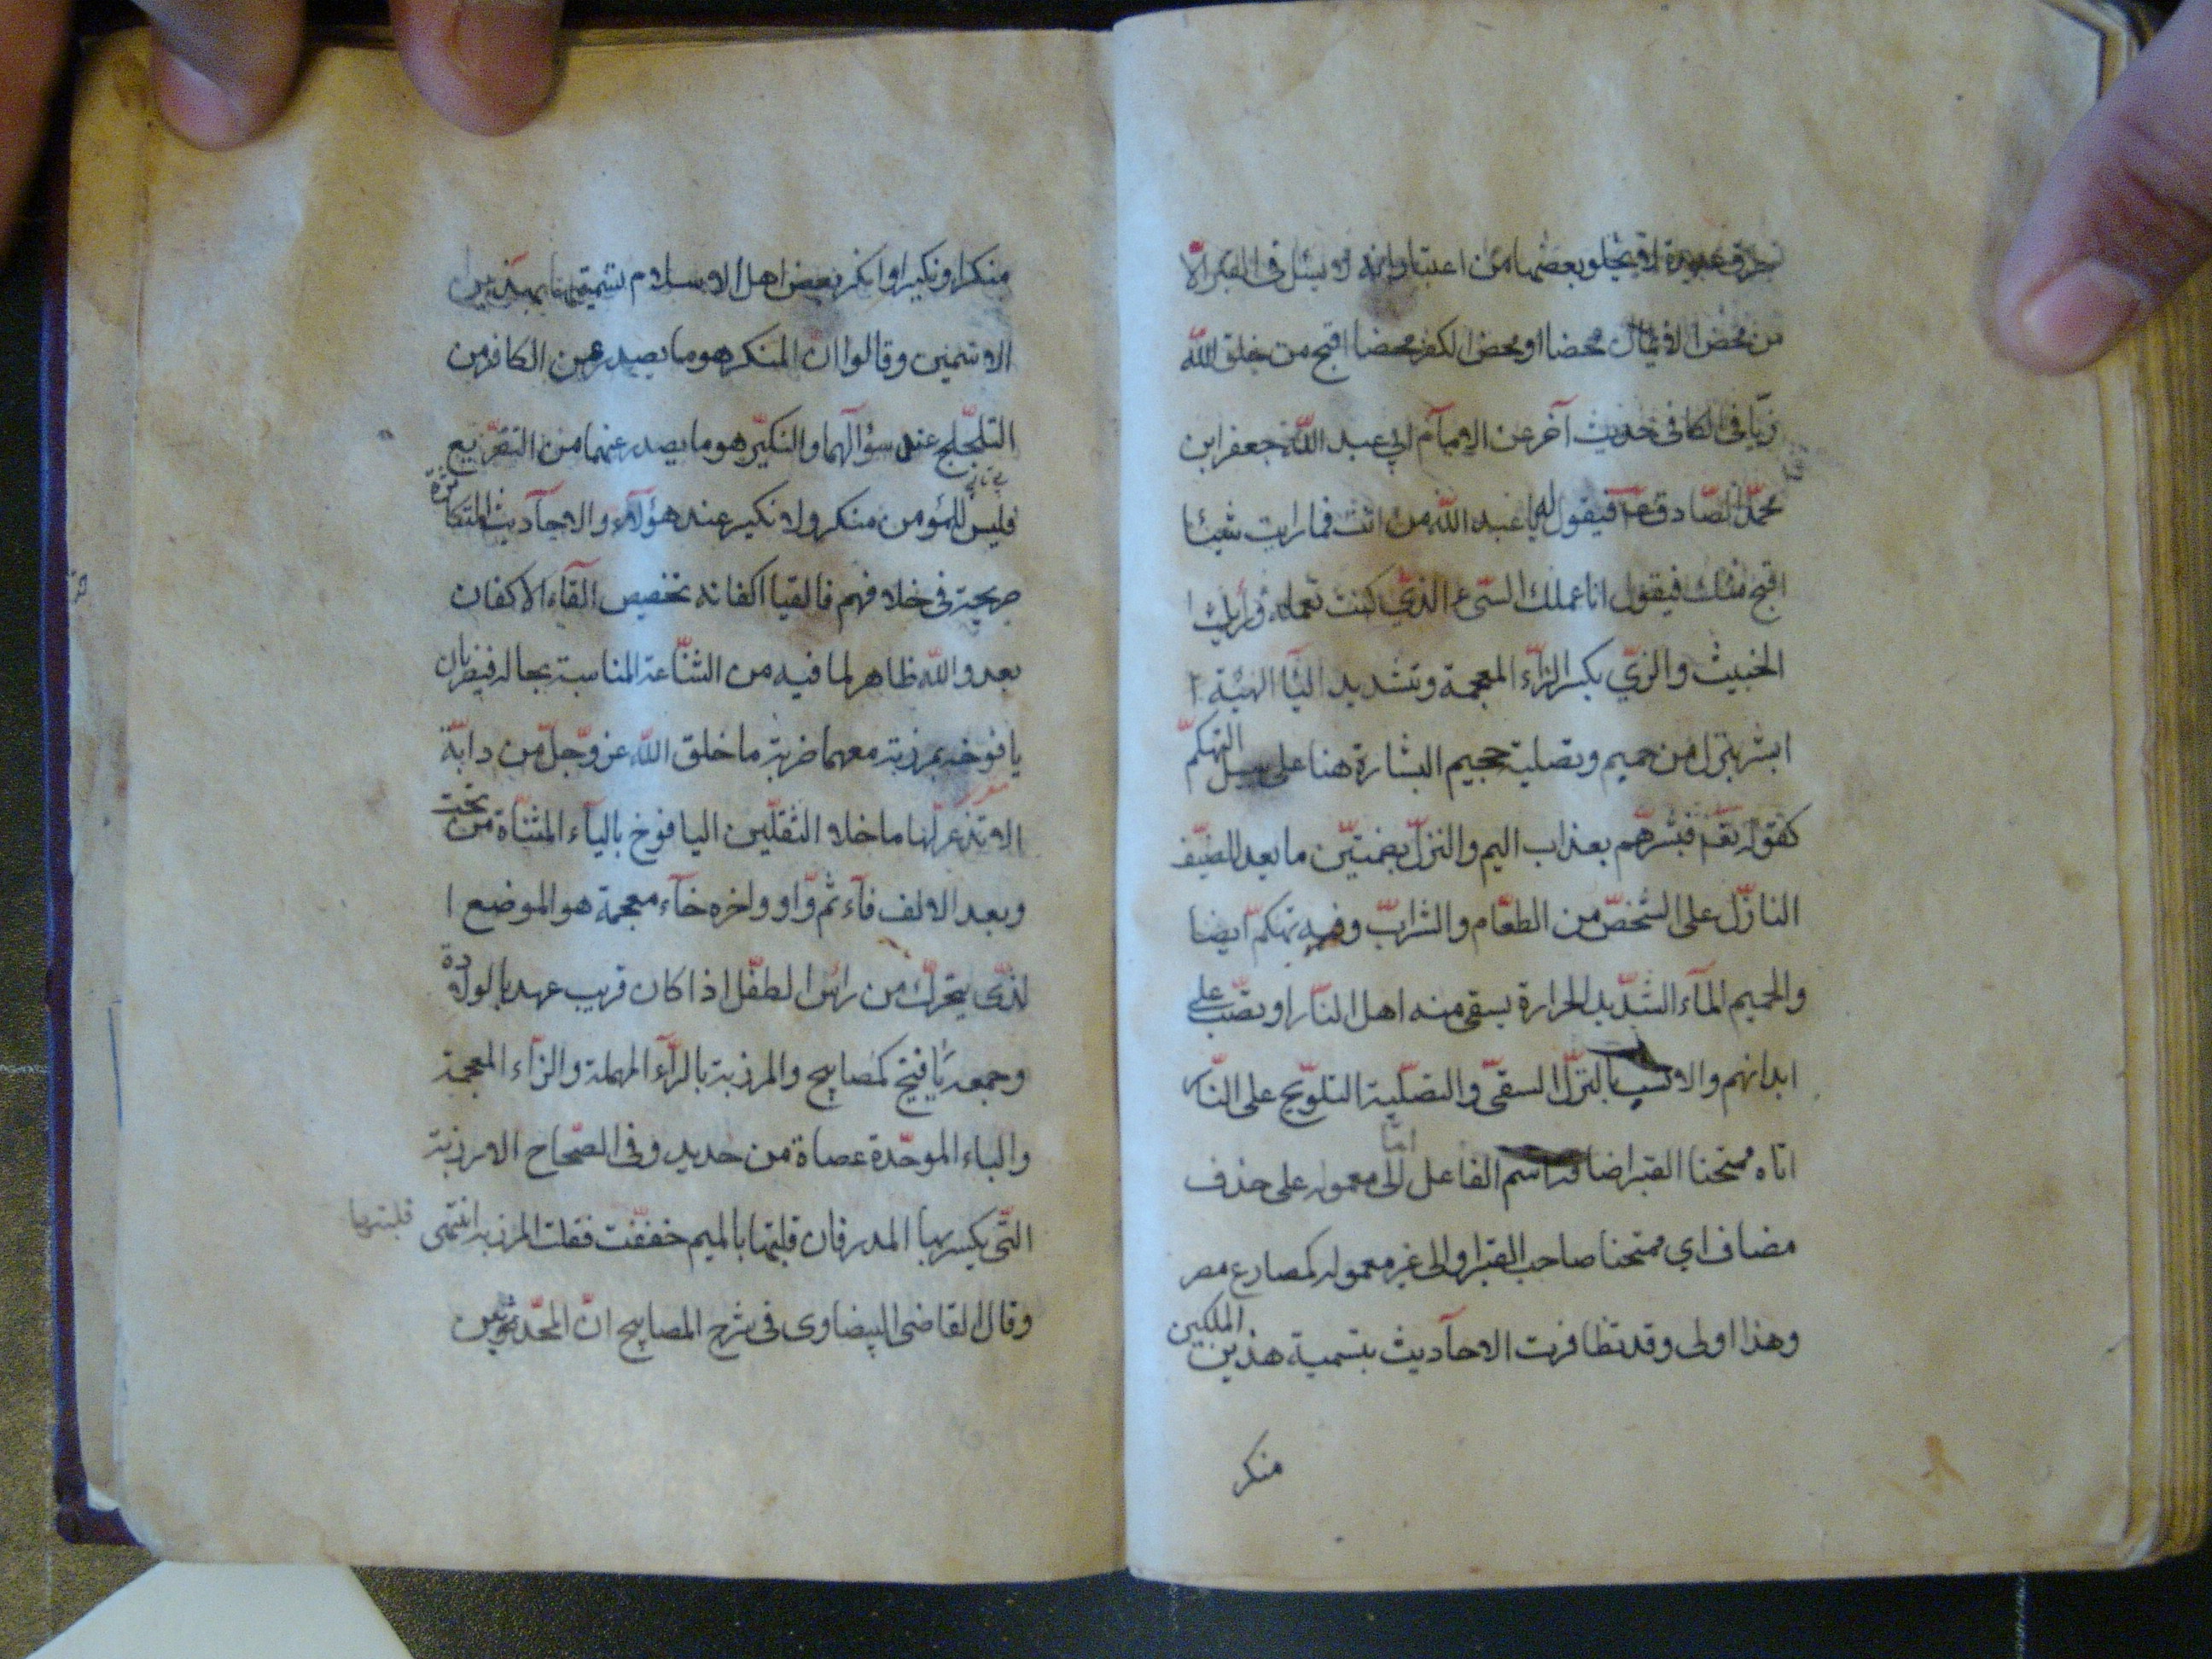 بعضها من اعتبار وانه لا يسئل فى القبر الّا
من محض الايمان محضا او محض الكفر محضا اقبح من خلق اللّه
زيّا فى الكافى حديث آخر عن الامآم ابي عبد اللّه جعفر ابن
محمّد الصّادق فيقول له يا عبد اللّه من انت فما رايت شيئا
اقبح منك فيقول انا عملك السّىء الذّي كنت تعمله ورأيك ا
الخبيث والزيّ بكسر الزاّء المعجمة وتشديد اليآ الهيئة ا
ابشر بنزل من حميم وتصلية جحيم البشارة هنا على سبيل التهكّم
كقوله تعّ فبشّرهّم بعذاب اليم والنزلّ بضمتيّن ما يعد للضيّف
النازّل على الشخصّ من الطعّام والشرابّ وفيه تهكمّ ايضا
والحميم المآء الشدّيد الحرارة يسقى منه اهل النّار او يصّب على
ابدانهم والانسب بالنزلّ السقىّ والتصلّية التلويّح على النّار
اتاه ممتحنا القبر اضافة اسم الفاعل امّا الى معموله على حذف
مضاف اي ممتحنا صاحب القبر او الى غير معموله كمصارع مصر
وهذا اولى وقد تظافرت الاحآديث بتسمية هذين الملكين
منكر
منكرا ونكيرا وانكر بعض اهل الاسلام تسميتهما بهذين
الاسمين وقالوا ان المنكر هو ما يصدر عن الكافر من
التلجلج عند سؤالهما والنكيّر هو ما يصدر عنهما من التقرّيع
فليس للمؤمن منكر ولا نكير عند هؤلآء والاحآديث المتكاثرة
صريحة فى خلافهم فالقيا اكفانه تخصيص القآء الاكفان
بعدو اللّه ظاهر لما فيه من الشنّاعة المناسبة بحاله فيضربان
يافوخه بمرزبة معهما ضربة ما خلق اللّه عز وجلّ من دابّة
الا تذعر لها ما خلا الثقليّن اليافوخ باليآء المثنّاة من تحت
وبعد الالف فآء ثم وّاو واخره خآء معجمة هو الموضع ا
لذّى يتحركّ من رأس الطفّل اذا كان قريب عهد بالولادة
وجمعه يآفيخ كمصابيح والمرزبة بالرآّء المهملة والزآّء المعجمة
والباء الموحّدة عصاة من حديد وفى الصّحاح الارزبة
التّى يكسر بها المدر فان قلبتها بالميم خففّت فقلت المرزبة انتهى
قلبتها
وقال القاضى البيضاوى فى شرح المصابيح انّ المحدّثين